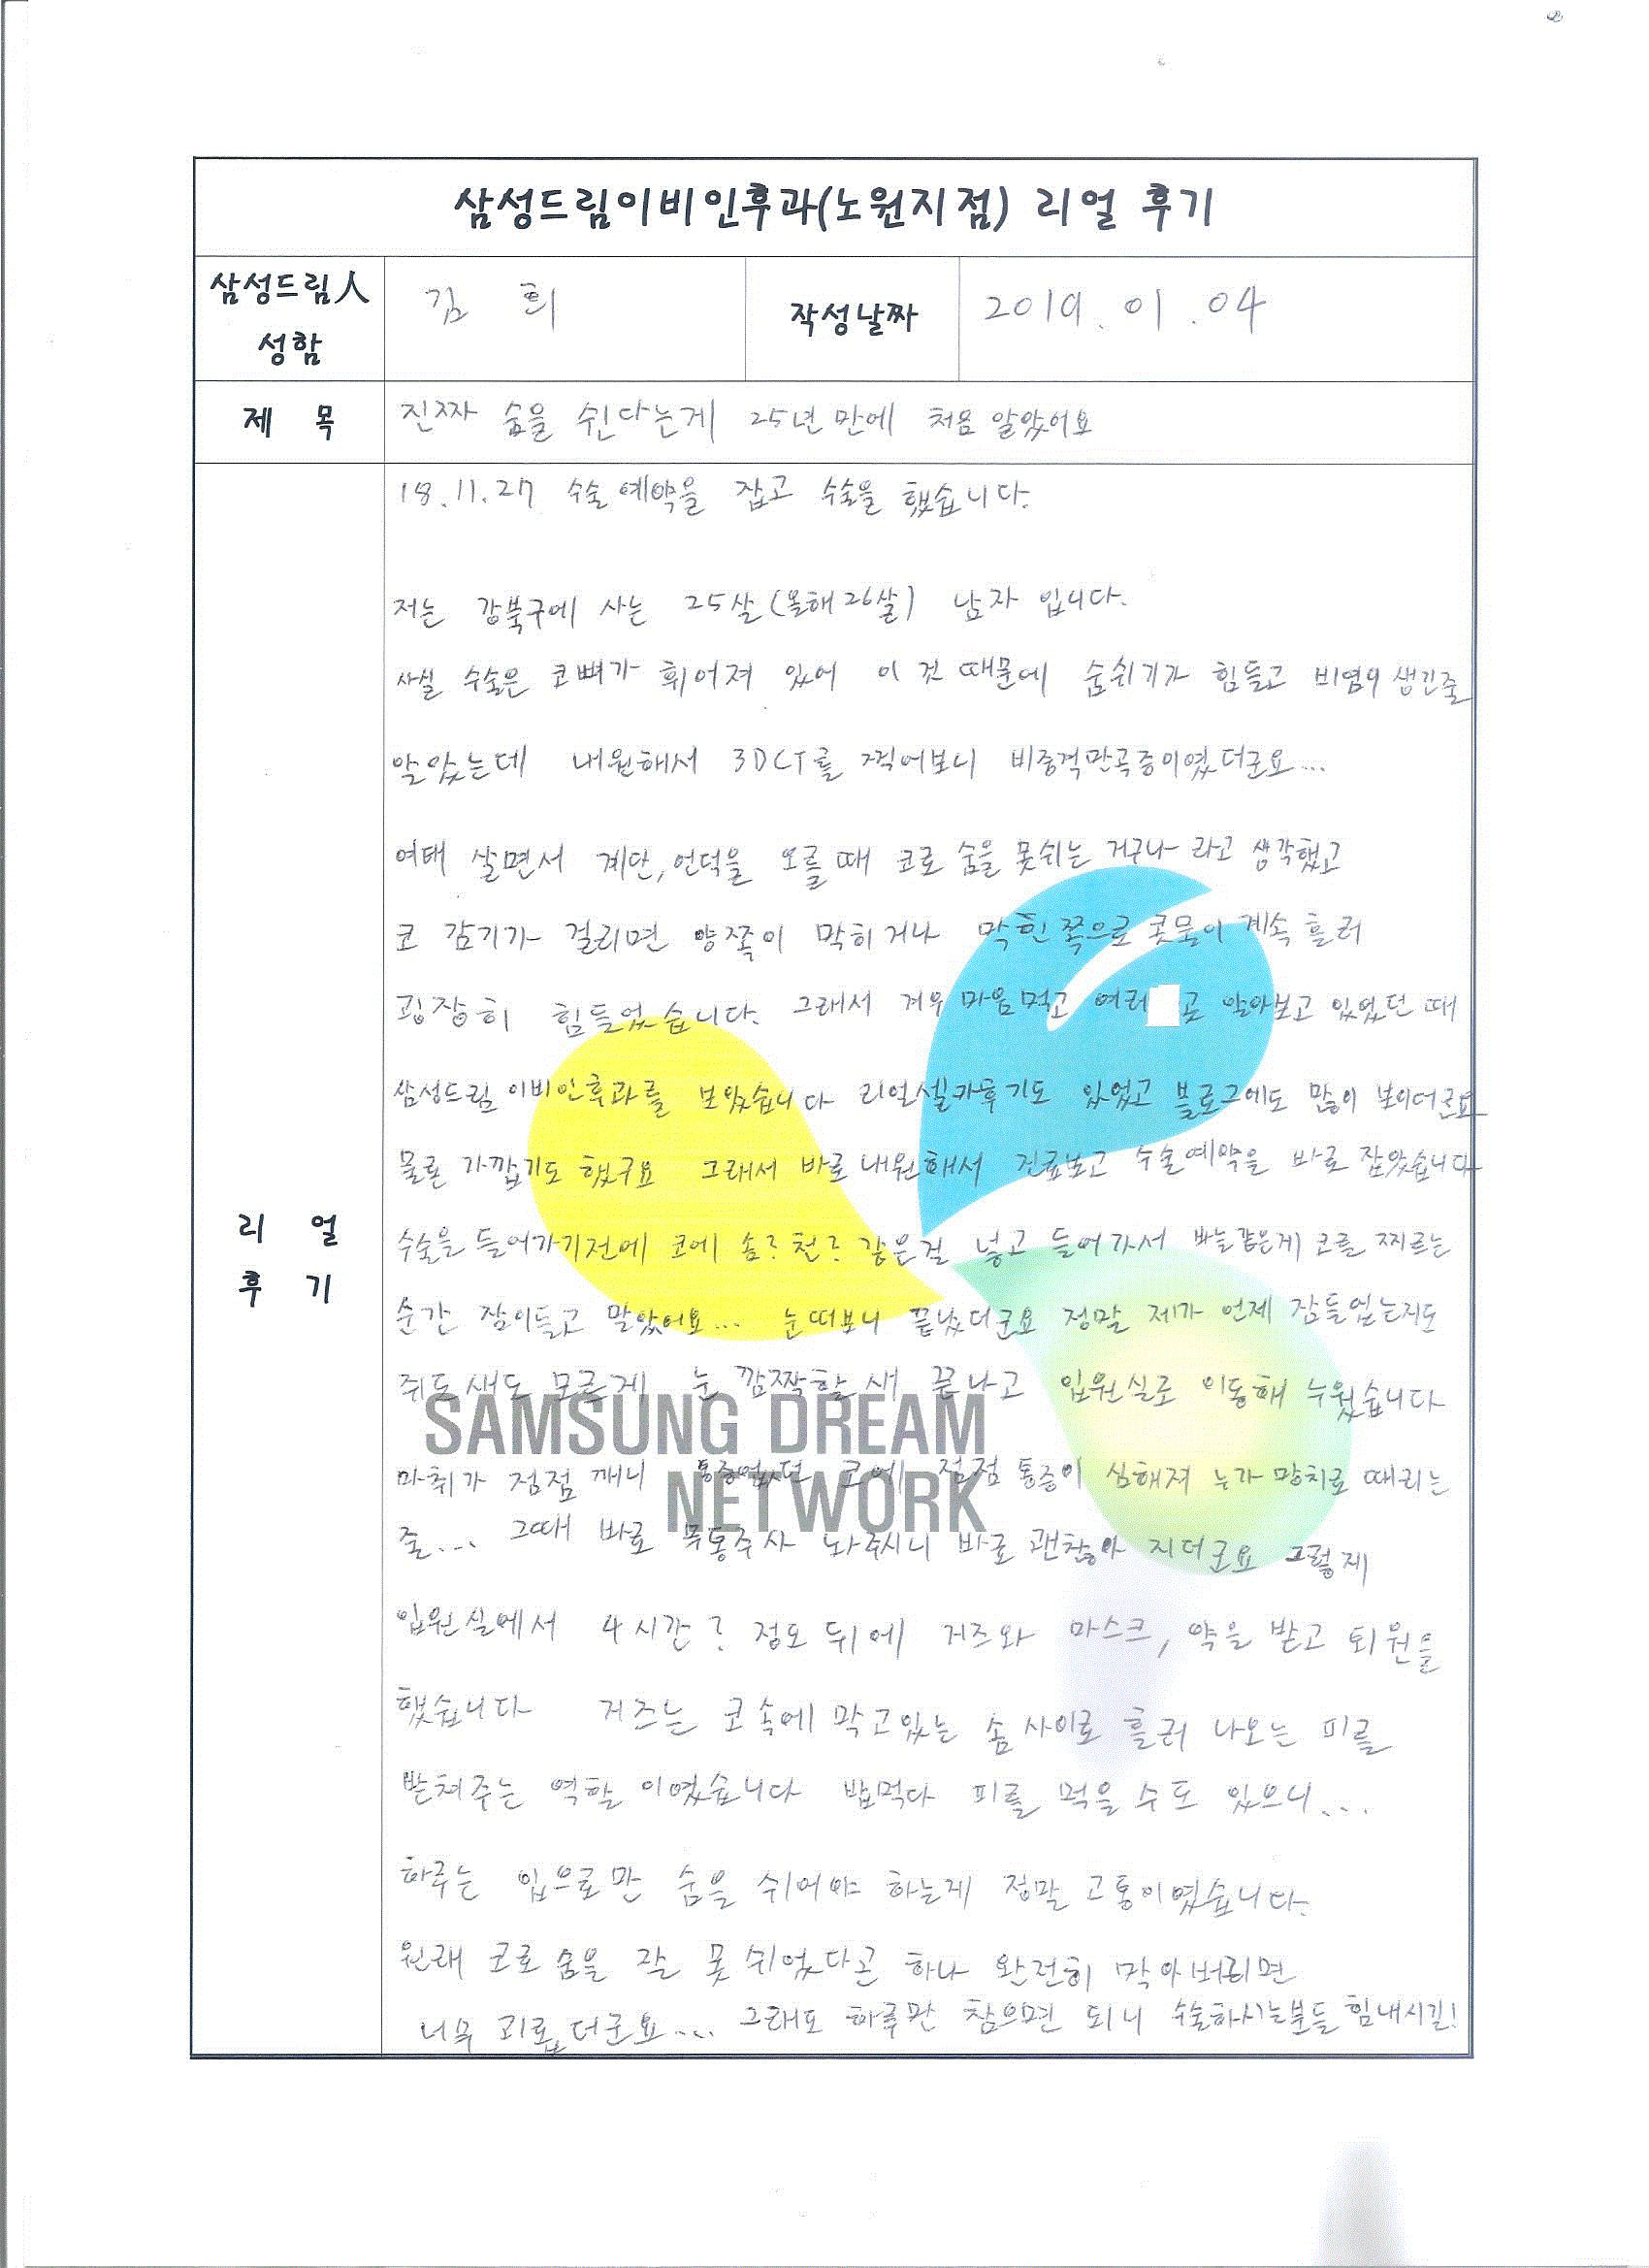 삼성드림이비인후과(노원지점) 리얼 후기
삼성드림人
성함
김 희
작성날짜
2019.01.04
제 목
진짜 숨을 쉰다는게 25년만에 처음 알았어요
리 얼
후 기
18.11.27 수술예약을 잡고 수술을 했습니다.
저는 강북구에 사는 25살(올해26살) 남자 입니다.
사실 수술은 코뼈가 휘어져 있어 이 것 때문에 숨쉬기가 힘들고 비염이 생긴줄
알았는데 내원해서 3DCT를 찍어보니 비중격만곡증이였더군요...
여태 살면서 계단,언덕을 오를때 코로 숨을 못쉬는 거구나 라고 생각했고
코 감기가 걸리면 양쪽이 막히거나 막힌쪽으로 콧물이 계속 흘러
굉장히 힘들었습니다. 그래서 겨우 마음먹고 여러 곳 알아보고 있었던 때
삼성드림이비인후과를 보았습니다 리얼셀카후기도 있었고 블로그에도 많이 보이더군요
물론 가깝기도 했구요 그래서 바로 내원해서 진료보고 수술예약을 바로 잡았습니다
수술을 들어가기전에 코에 솜? 천? 같은걸 넣고 들어가서 바늘같은게 코를 찌르는
순간 잠이들고 말았어요... 눈떠보니 끝났더군요 정말 제가 언제 잠들었는지도
쥐도새도 모르게 눈 깜짝할 새 끝나고 입원실로 이동해 누웠습니다
마취가 점점 깨니 코에 점점 통증이 심해져 누가 망치로 때리는
줄... 그때 바로 무통주사 놔주시니 바로 괜찮아 지더군요 그렇게
입원실에서 4시간? 정도 뒤에 거즈와 마스크, 약을 받고 퇴원을
했습니다 거즈는 코속에 막고있는 솜사이로 흘러 나오는 피를
받쳐주는 역할 이였습니다 밥먹다 피를 먹을수도 있으니...
하루는 입으로만 숨을 쉬어야 하는게 정말 고통이였습니다.
원래 코로 숨을 잘 못 쉬었다곤 하나 완전히 막아버리면
너무 괴롭더군요... 그래도 하루만 참으면 되니 수술하시는분들 힘내시길!
SAMSUNG DREAM
NETWORK